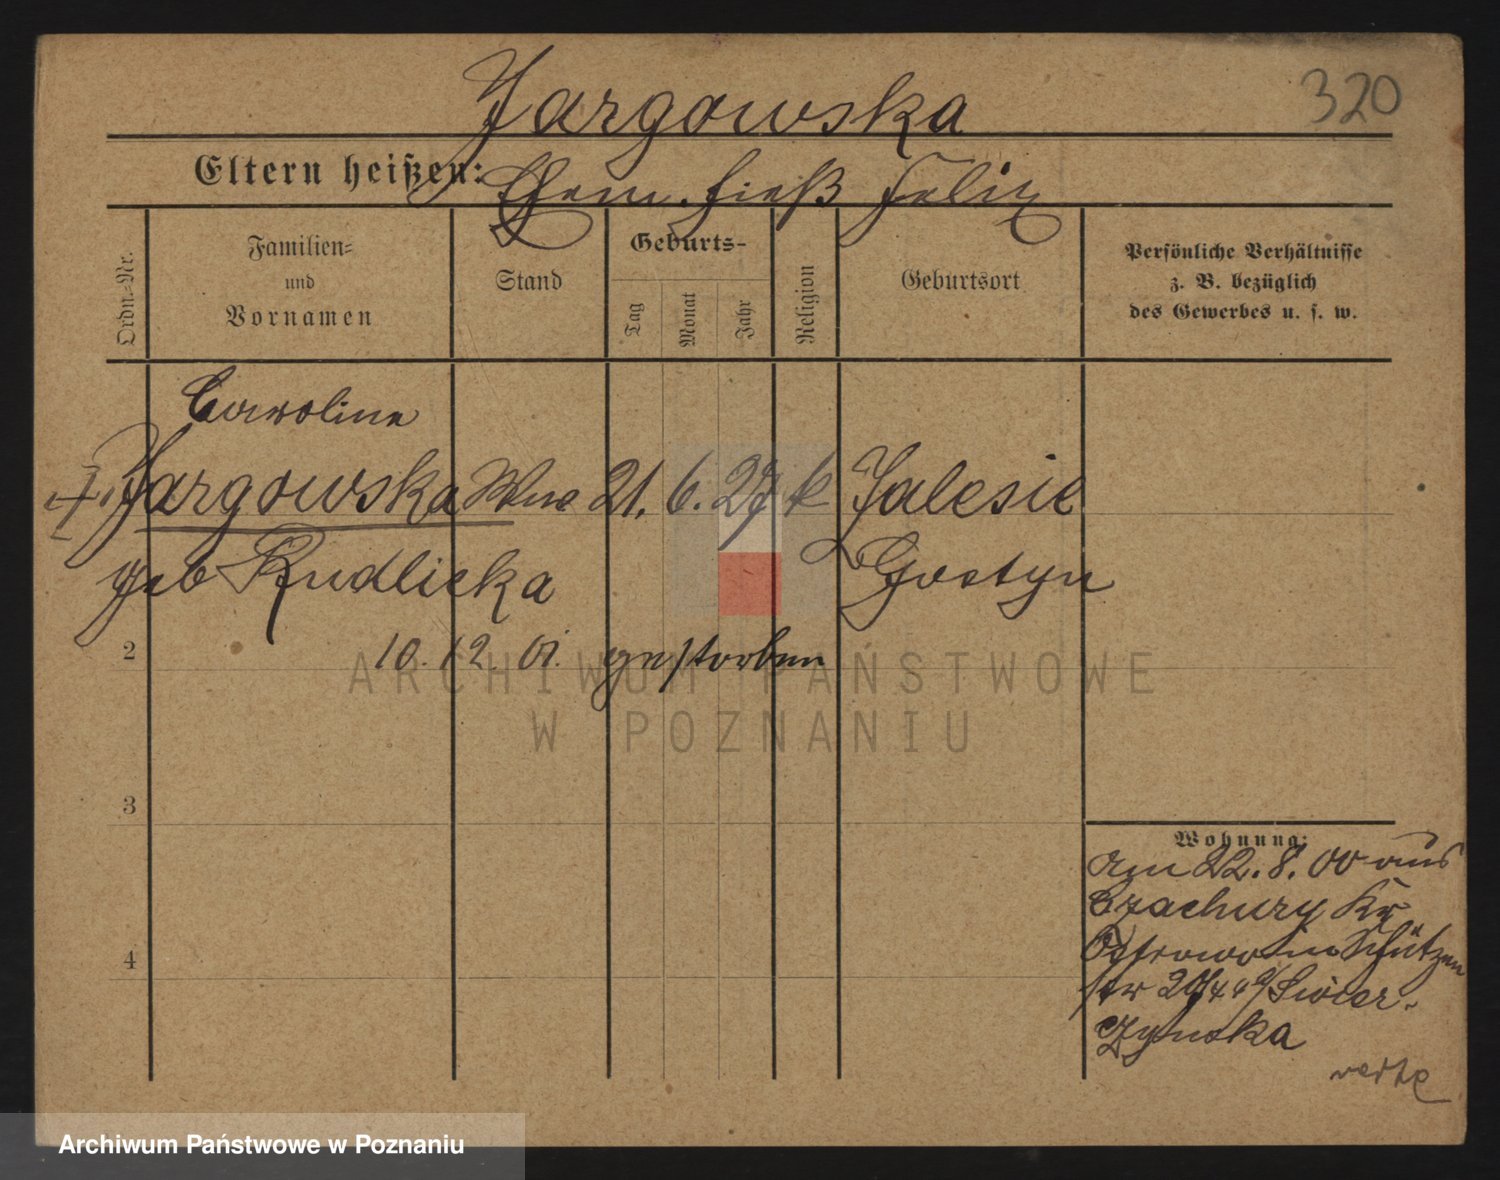 320
Zargowska
Eltern heißen: Ehem. hieß Felix
Ordn.-Nr.
Familien-
und
Vornamen
Stand
Geburts-
Tag
Monat
Jahr
Religion
Geburtsort
Persönliche Verhältnisse
z. B. bezüglich
des Gewerbes u. s. w.
Caroline
Zargowska Wwe 21. 6. 27 k Zalesie
geb Rudlicka Gostyn
2 10. 12. 01. gestorben
3
4
Wohnung:
Am 22. 8. 00 aus
Czachury Kr
Ostrowo in Schützen
str
Zynska
verte
ARCHIWUM PAŃSTWOWE
W POZNANIU
Archiwum Państwowe w Poznaniu